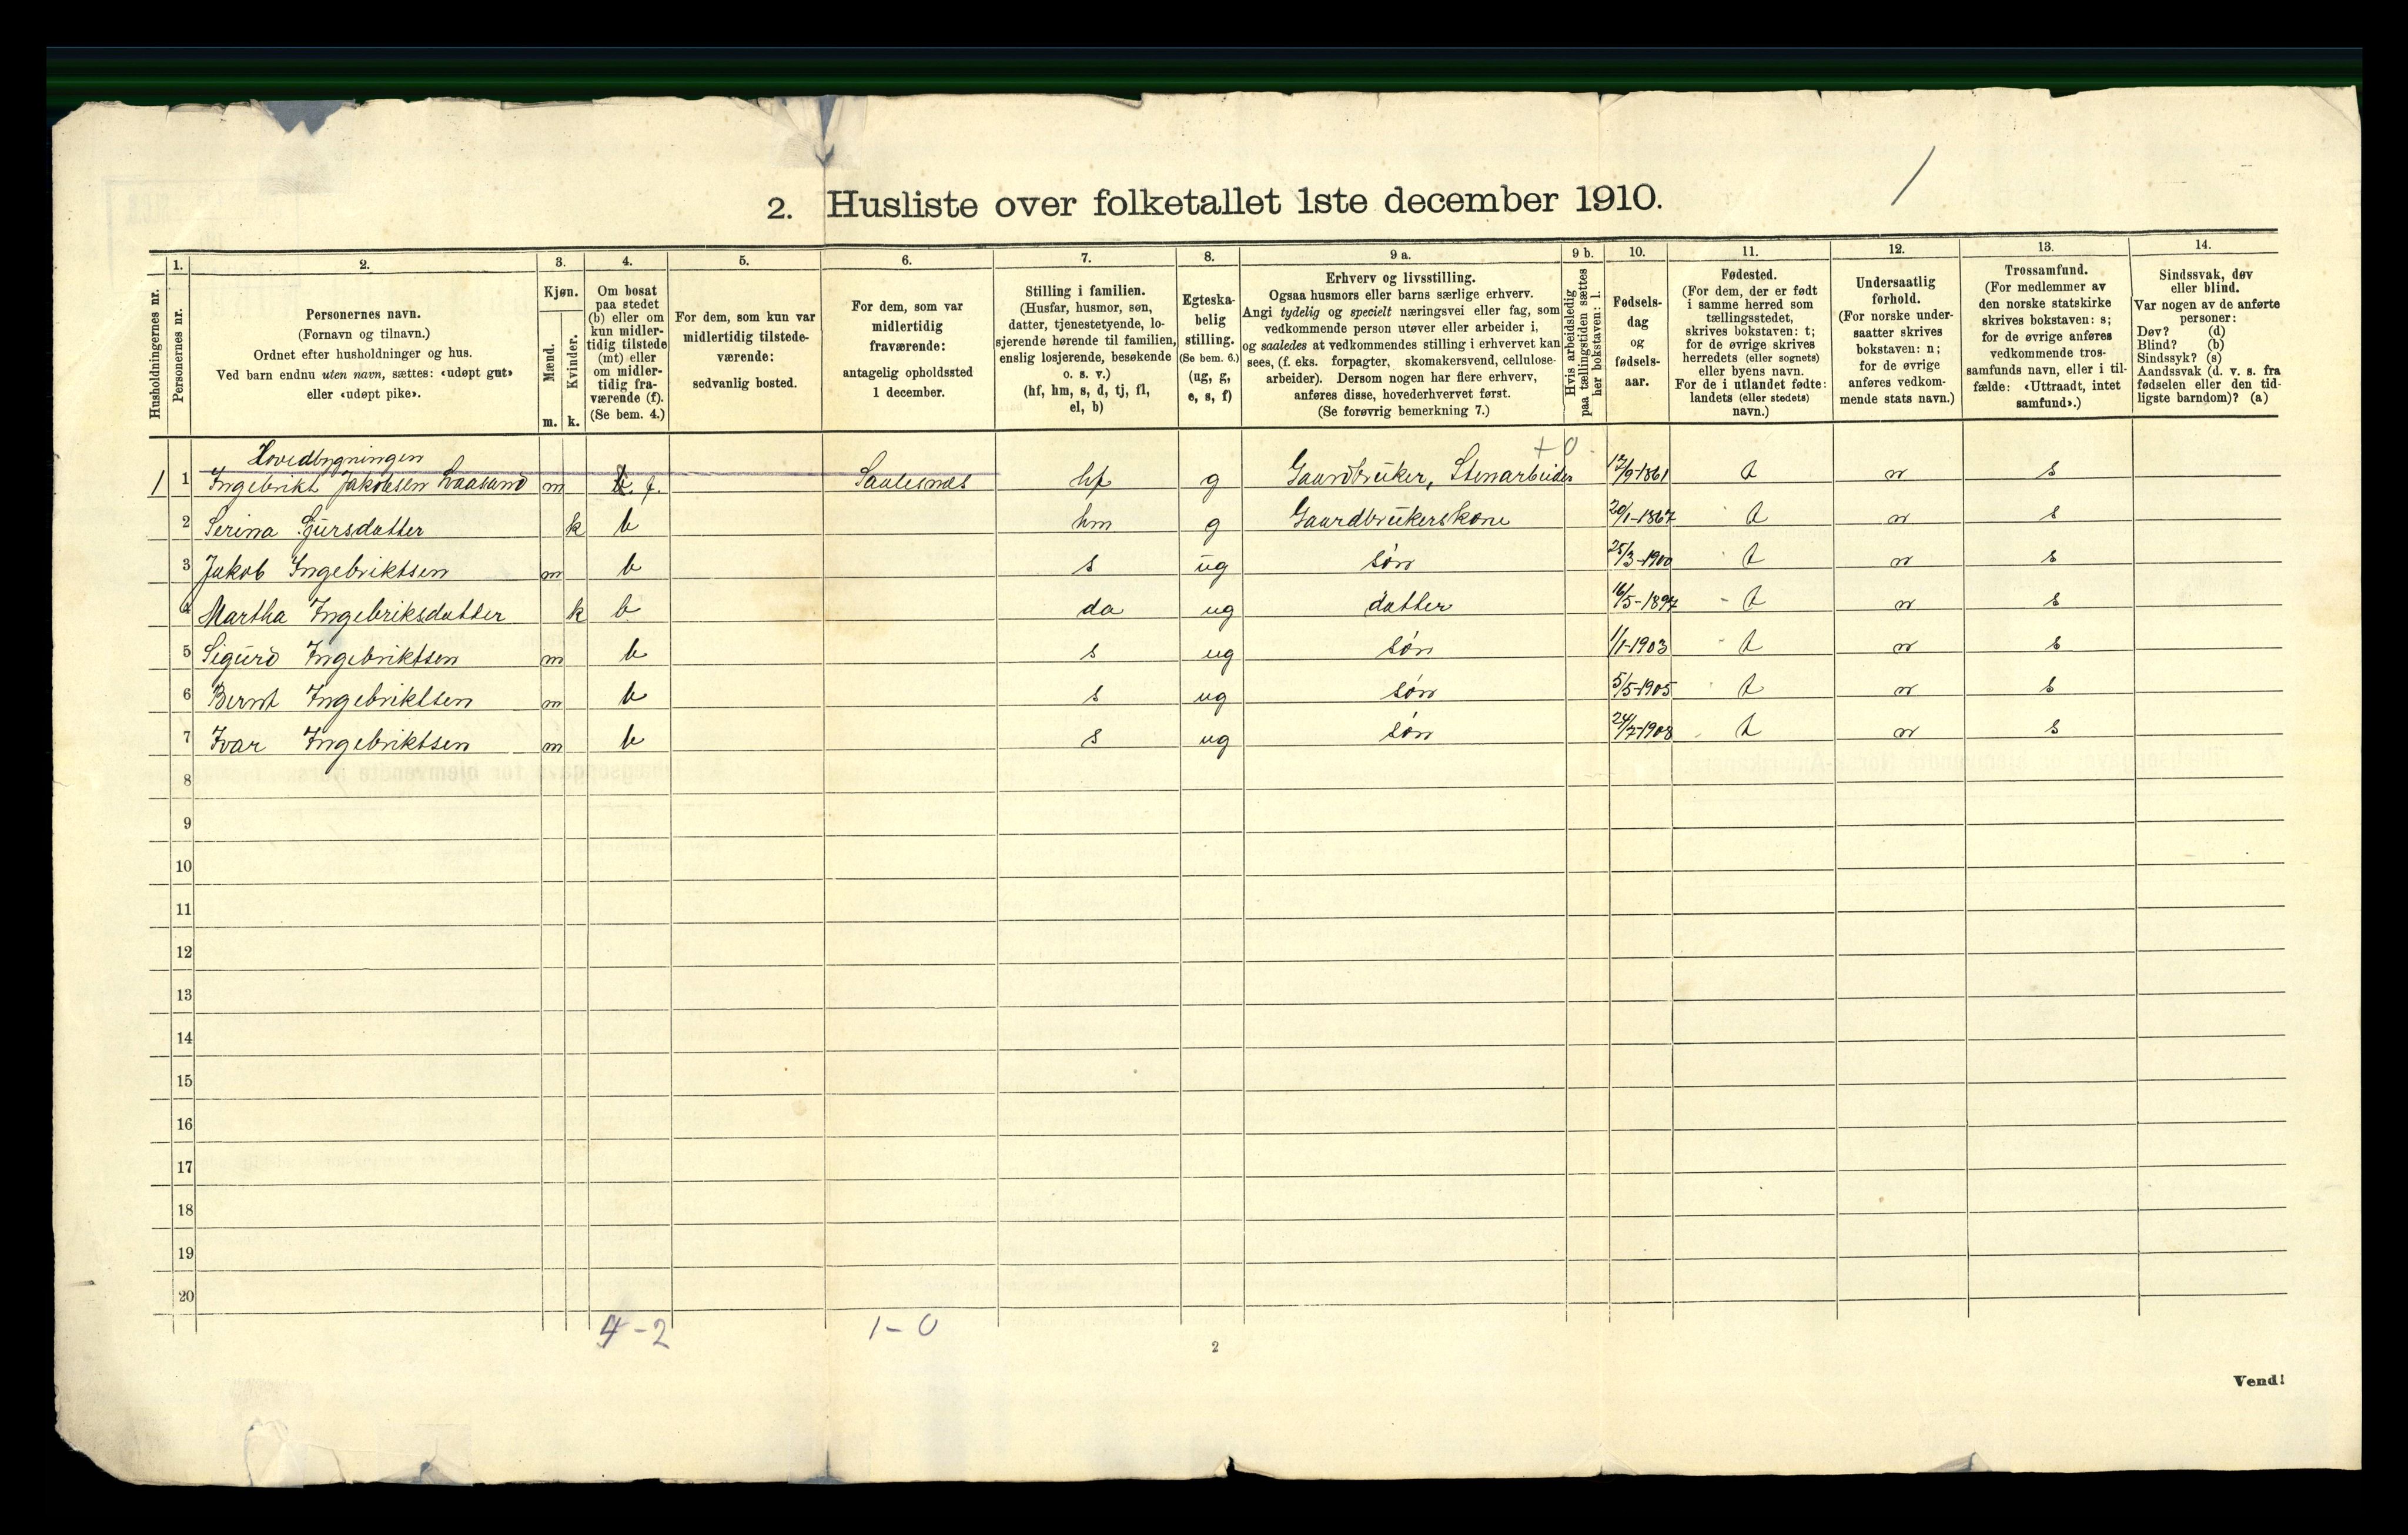 2. Husliste over folketallet 1ste december 1910.
Husholdningernes nr.
1.
Personernes nr.
2.
Personernes navn.
(Fornavn og tilnavn.)
Ordnet efter husholdninger og hus.
Ved barn endnu uten navn, sættes: «udøpt gut»
eller «udøpt pike».
3.
Kjøn.
Mænd.
Kvinder.
m. k.
4.
Om bosat
paa stedet
(b) eller om
kun midler-
tidig tilstede
(mt) eller
om midler-
tidig fra-
værende (f).
(Se bem. 4.)
5.
For dem, som kun var
midlertidig tilstede-
værende:
sedvanlig bosted.
6.
For dem, som var
midlertidig
fraværende:
antagelig opholdssted
1 december.
7.
Stilling i familien.
(Husfar, husmor, søn,
datter, tjenestetyende, lo-
sjerende hørende til familien,
enslig losjerende, besøkende
o. s. v.)
(hf, hm, s, d, tj, fl,
el, b)
8.
Egteska-
belig
stilling.
(Se bem. 6.)
(ug, g,
e, s, f)
9 a.
Erhverv og livsstilling.
Ogsaa husmors eller barns særlige erhverv.
Angi tydelig og specielt næringsvei eller fag, som
vedkommende person utøver eller arbeider i,
og saaledes at vedkommendes stilling i erhvervet kan
sees, (f. eks. forpagter, skomakersvend, cellulose-
arbeider). Dersom nogen har flere erhverv,
anføres disse, hovederhvervet først.
(Se forøvrig bemerkning 7.)
9 b.
Hvis arbeidsledig
paa tællingstiden sættes
her bokstaven: l.
10.
Fødsels-
dag
og
fødsels-
aar.
11.
Fødested.
(For dem, der er født
i samme herred som
tællingsstedet,
skrives bokstaven: t;
for de øvrige skrives
herredets (eller sognets)
eller byens navn.
For de i utlandet fødte:
landets (eller stedets)
navn.)
12.
Undersaatlig
forhold.
(For norske under-
saatter skrives
bokstaven: n;
for de øvrige
anføres vedkom-
mende stats navn.)
13.
Trossamfund.
(For medlemmer av
den norske statskirke
skrives bokstaven: s;
for de øvrige anføres
vedkommende tros-
samfunds navn, eller i til-
fælde: «Uttraadt, intet
samfund».)
14.
Sindssvak, døv
eller blind.
Var nogen av de anførte
personer:
Døv? (d)
Blind? (b)
Sindssyk? (s)
Aandssvak (d. v. s. fra
fødselen eller den tid-
ligste barndom)? (a)
Hovedbygningen +0
1 1 Ingebrikt Jakobsen m b. f. hf g Gaardbruker, Stenarbeider 17/9-1861 t n s
2 Serina Sjursdatter k b hm g Gaardbrukerskone 20/1-1867 t n s
3 Jakob Ingebriktsen m b s ug søn 25/3-1900 t n s
4 Martha Ingebriksdatter k b da ug datter 16/5-1897 t n s
5 Sigurd Ingebriktsen m b s ug søn 1/1-1903 t n s
6 Bernt Ingebriktsen m b s ug søn 5/5-1905 t n s
7 Ivar Ingebriktsen m b s ug søn 24/7-1908 t n s
8
9
10
11
12
13
14
15
16
17
18
19
20
4-2 1-0
2
Vend!